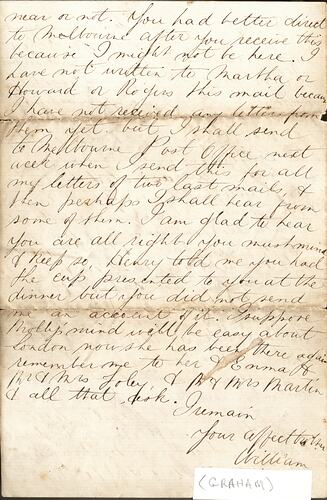 near or not. You had better direct
to Melbourne after you receive this
because I might not be here. I
have not written to Martha or
Howard or Rogers this mail becaus
I have not received any letters from
them yet. but I shall send
to Melbourne Post Office next
week when I send this for all
my letters of two last mails, &
then perhaps I shall hear from
some of them. I am glad to hear
you are all right you must mind
& keep so, Henry told me you had
the cup presented to you at the
dinner but you did not send
me an account of it. I suppose
Mollys mind will be easy about
London now she has been there again
remember me to her & Emma &
Mr & Mrs Foley, & Mr & Mrs Martin
& all that ask. I remain
Your affect
William
(GRAHAM)